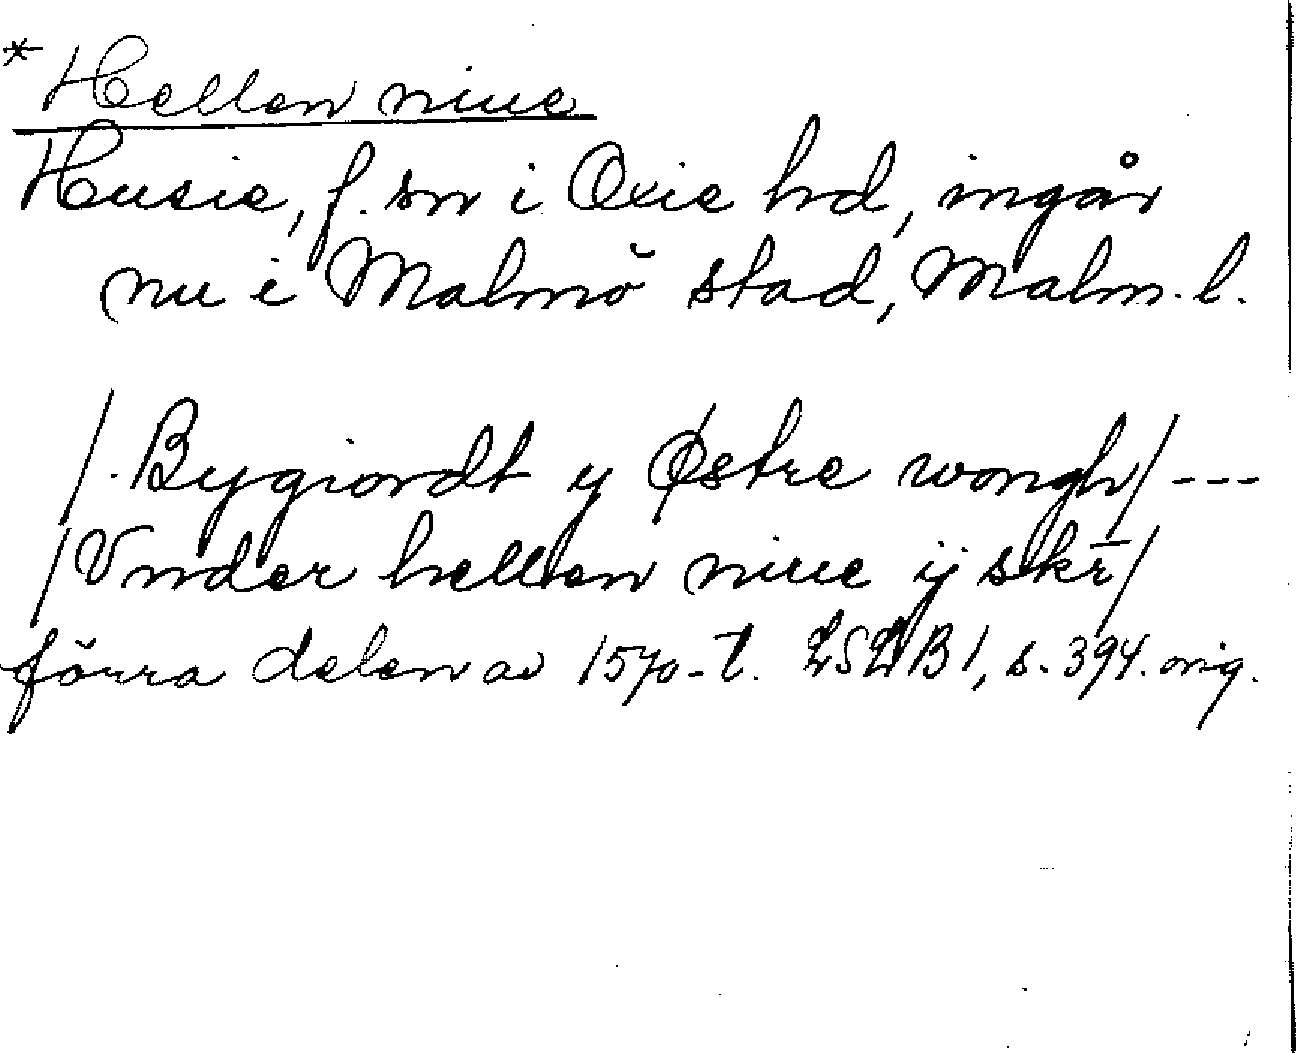 * Hellen niue
Husie, f. sn i Oxie hd, ingår
nu i Malmö stad, Malm. l.
/. Bygiordt y Østre wongh/ ---
/Vnder hellen niue ij skr̄/
förra delen av 1570-t. LSLB 1, s. 394. orig.